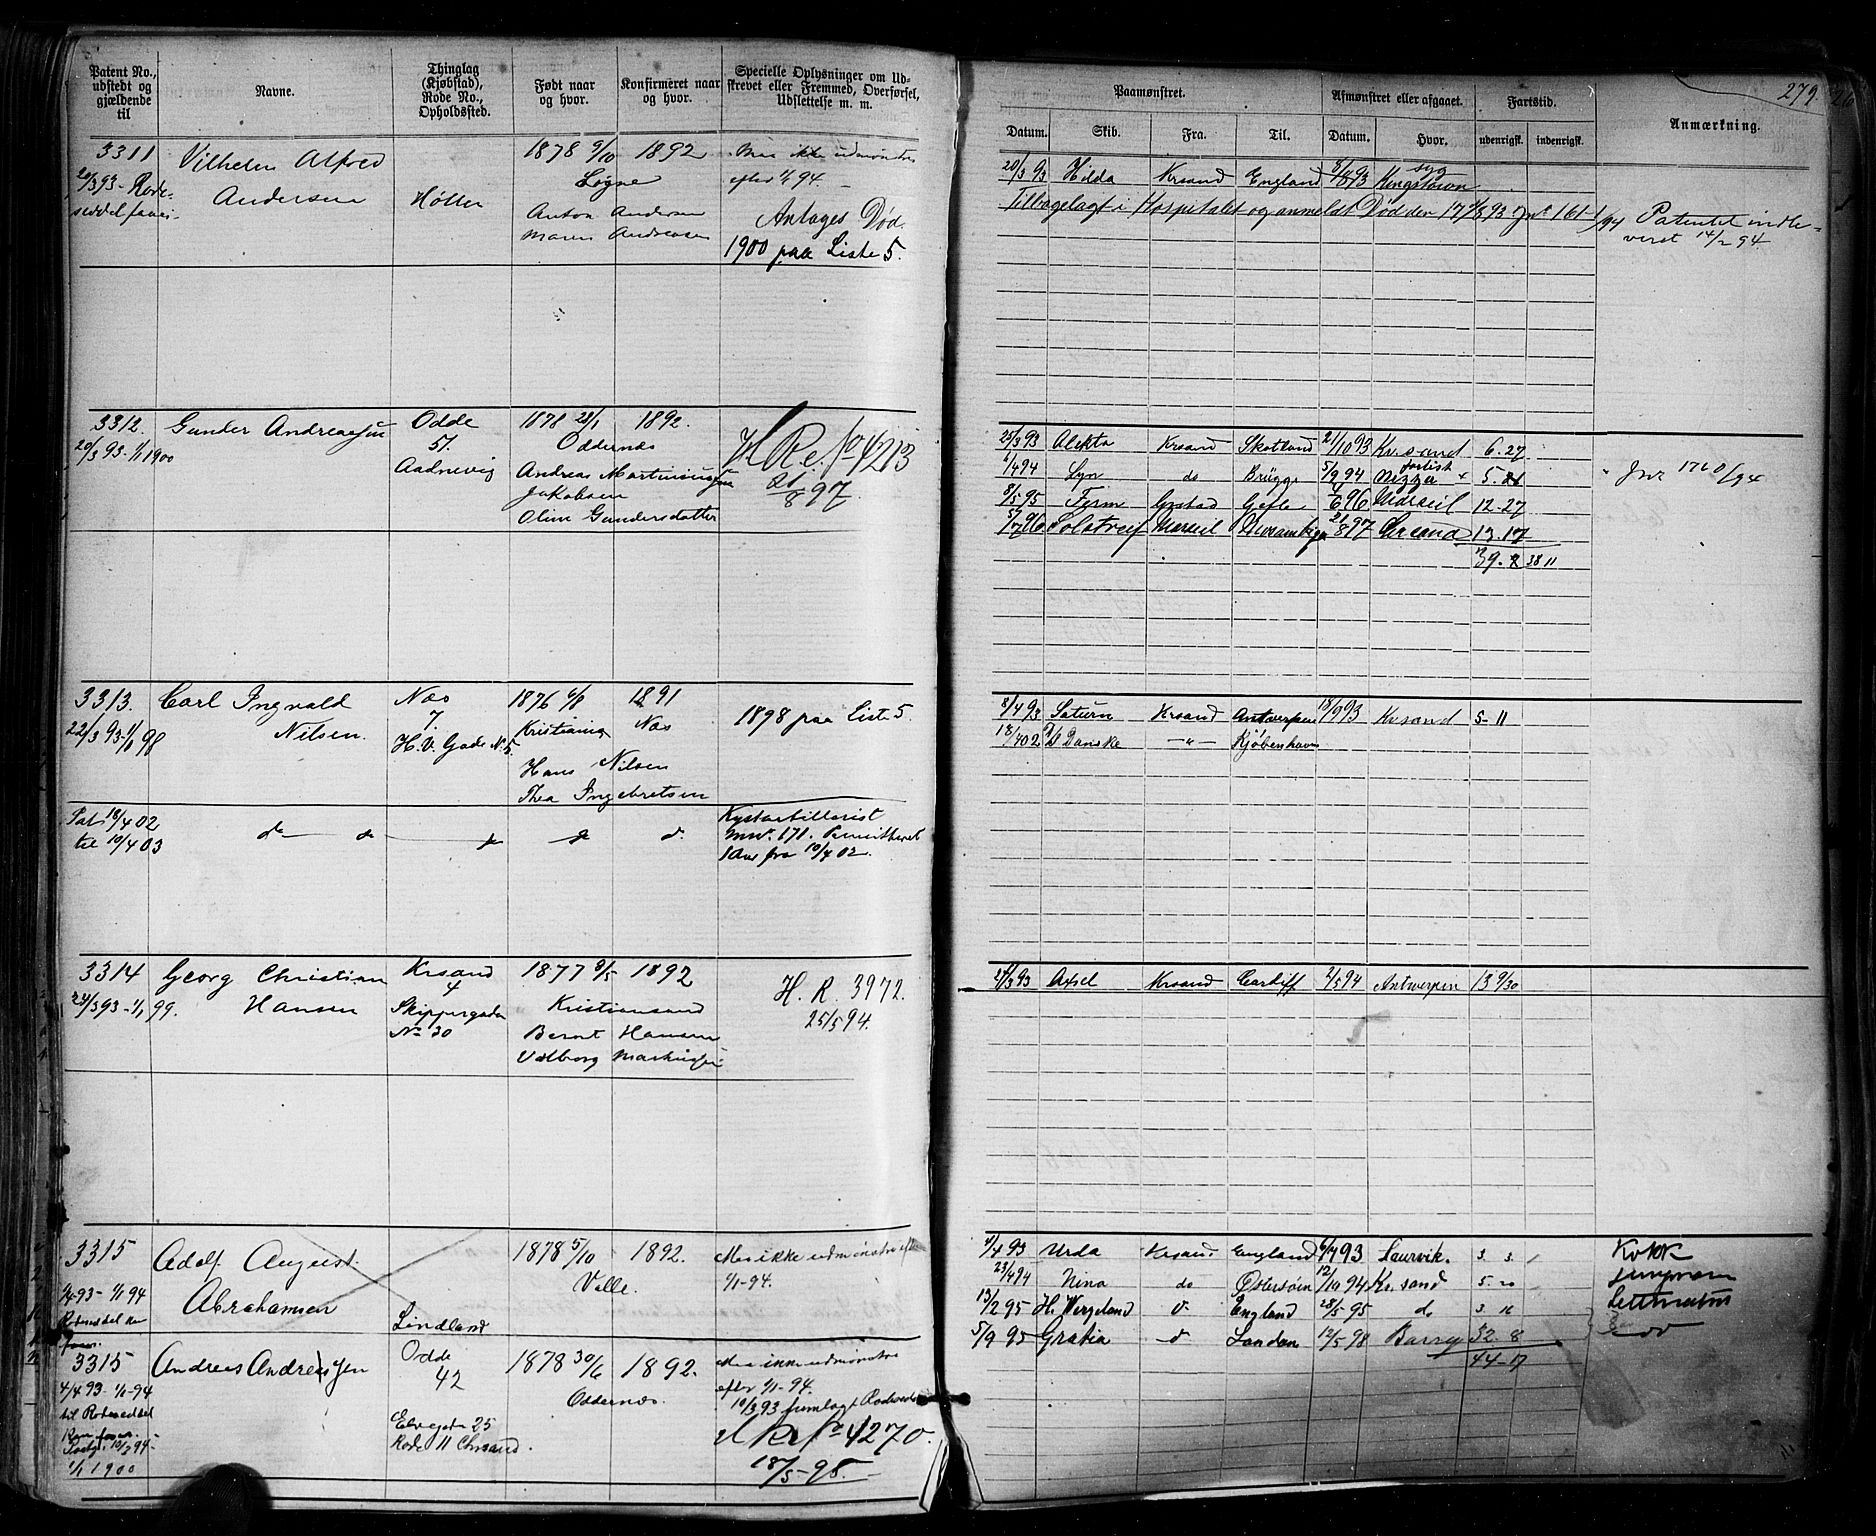 Patent No., udstedt og gjældende til
Navne.
Thinglag (Kjøbstad), Rode No., Opholdssted.
Født naar og hvor.
Konfirmeret naar og hvor.
Specielle Oplysninger om Udskrevet eller Fremmed, Overførsel, Udslettelse m. m.
3311
20/3 93 - Rode-
seddel faaes
Vilhelm Alfred
Andersen
Høllen
1878 9/10 1892
Søgne
Anton Andersen
Maren Andreasen
Maa ikke udmønstres
efter 1/1 94.
Antages Død.
1900 paa Liste 5.
3312.
20/3 93 - 1/1 1900
Gunder Andreassen
Odde
51.
Aadnevig
1878 28/1 1892.
Oddernes
Andreas Martiniussen
Jakobsen
Oline Gundersdatter
H Re. fo 4213
21/8 97.
3313.
22/3 93 - 1/1 98
Carl Ingvald
Nilsen.
Næs
7.
H. V. Gade No 5.
1876 6/1 1891
Kristiania Næs
Hans Nilsen
Thea Ingebretsen
1898 paa Liste 5.
Pat. 18/4 02
til 10/4 03
do do do do do
Kystartillerist
mnr. 171. Permitteret
1 Aar fra 10/4 02.
3314
24/3 93 - 1/1 99.
Georg Christian
Hansen
Krsand
4
Skippergaden
No 30
1877 9/5 1892
Kristianssand
Bernt Hansen
Valborg
H. R. 3972.
25/5 94.
3315
4/4 93 - 1/1 94
Adolf August
Abrahamsen
Lindland
1878 5/10 1892.
Valle.
Maa ikke udmønstres efter
1/1 - 94.
3315
4/4 93 - 1/1 - 94
til Rodeseddel
Kan faaes.
10/2 94 -
1/1 1900
Andreas Andreassen
Odde
42
Elvegaden 25
Rode 11 Chrsand.
1878 30/6 1892.
Oddernes.
Maa ikke udmønstres
efter 1/1 - 94.
10/3 93 fremlagt Rodeseddel
H Re fo 4270.
18/5 - 98.
279.
Paamønstret.
Afmønstret eller afgaaet.
Fartstid.
Anmærkning.
Datum. Skib. Fra. Til. Datum. Hvor. udenrigsk. indenrigsk.
20/3 93 Hilda Krsand England 3/8 93 syg Kingstown
Tilbagelagt i Hospitalet og anmeldt Død den 17/ 93 Jnr 161/94 Patentet indle-
veret 14/2 94
25/3 93 Alekta Krsand Skotland 21/10 93 Kr.sand 6. 27
6/4 94 Lyn do Brügge 5/9 94 5. Jnr 1760/94
8/5 95 Frem Grstad Gefle 4/6 96 Marseil 12. 27
5/7 96 Solstreif Marseil Mosambique 21/8 97 Chrsand 13. 17
39. 38 11
8/4 93 Saturn Krsand Antwerpen 18/9 93 Krsand 5 - 11
18/4 02 D/S Danske - " - Kjøbenhavn
24/3 93 Axsel Krsand Cardiff 2/5 94 Antwerpen 13 9/30
4/4 93 Urda Krsand England 6/7 93 Laurvik. 3. 3. Kokk
23/4 94 Nina do Østersøen 12/10 94 Krsand 5. 20 Jungmann
13/2 95 H. Wergeland d England 28/5 95 do 3. 16 Lettmatros
5/9 95 Gratia d London 12/5 98 Barry 32. 8
44 - 17